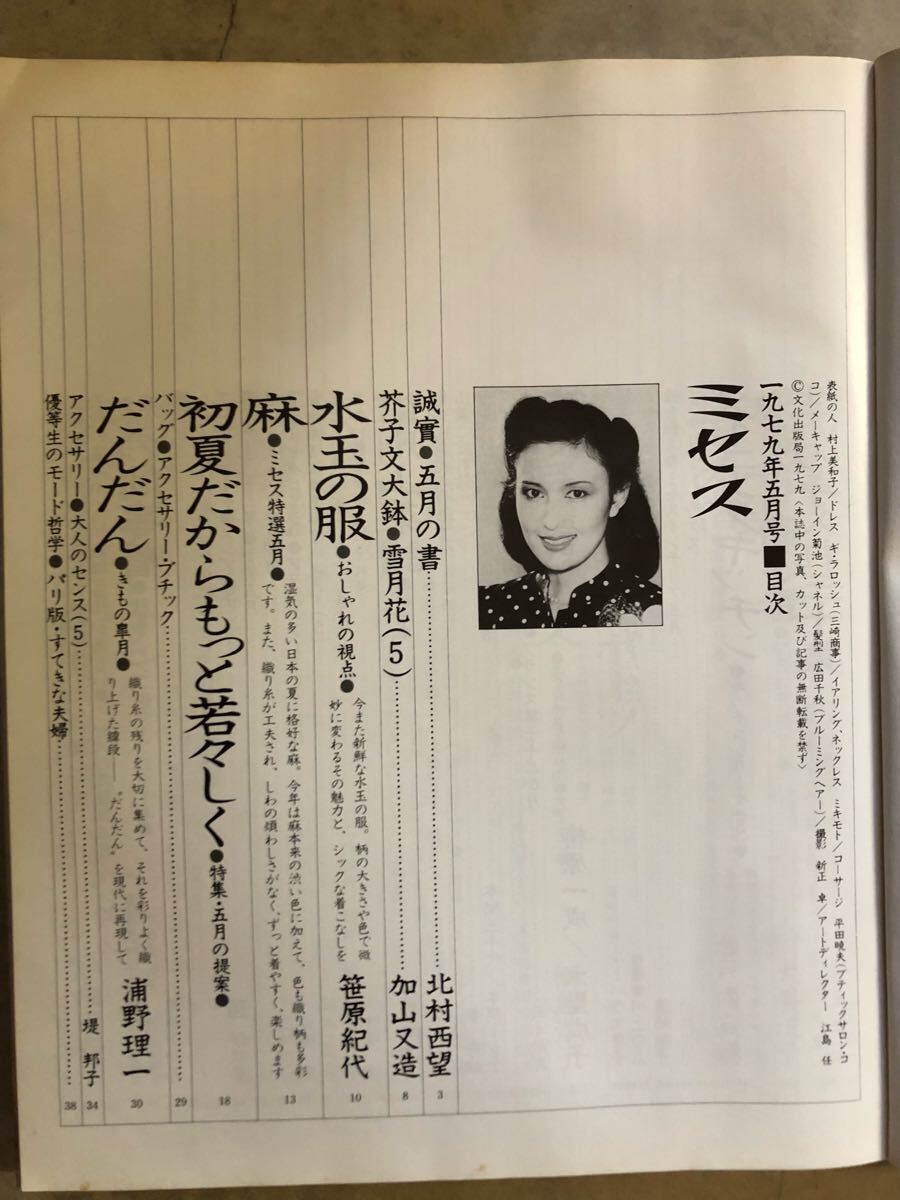 表紙の人　村上美和子／ドレス　ギ・ラロッシュ（三崎商事）／イアリング、ネックレス　ミキモト／コーサージ　平田暁夫（ブティックサロン・コ
コ）／メーキャップ　ジョーイン菊池（シャネル）／髪型　広田千秋（ブルーミングヘアー）／撮影　新正　卓／アートディレクター　江島　任
©文化出版局一九七九〈本誌中の写真、カット及び記事の無断転載を禁ず〉
一九七九年五月号■目次
ミセス
誠實●五月の書……北村西望 3
芥子文大鉢●雪月花（5）……加山又造 8
水玉の服●おしゃれの視点●
今また新鮮な水玉の服。柄の大きさや色で微
妙に変わるその魅力と、シックな着こなしを
笹原紀代 10
麻●ミセス特選五月●
湿気の多い日本の夏に格好な麻。今年は麻本来の渋い色に加えて、色も織り柄も多彩
です。また、織り糸が工夫され、しわの煩わしさがなく、ずっと着やすく、楽しめます
13
初夏だからもっと若々しく●特集・五月の提案● 18
バッグ●アクセサリー・ブチック…… 29
だんだん●きもの皐月●
織り糸の残りを大切に集めて、それを彩りよく織
り上げた繦段——“だんだん”を現代に再現して
浦野理一 30
アクセサリー●大人のセンス（5）……堤　邦子 34
優等生のモード哲学●パリ版・すてきな夫婦…… 38